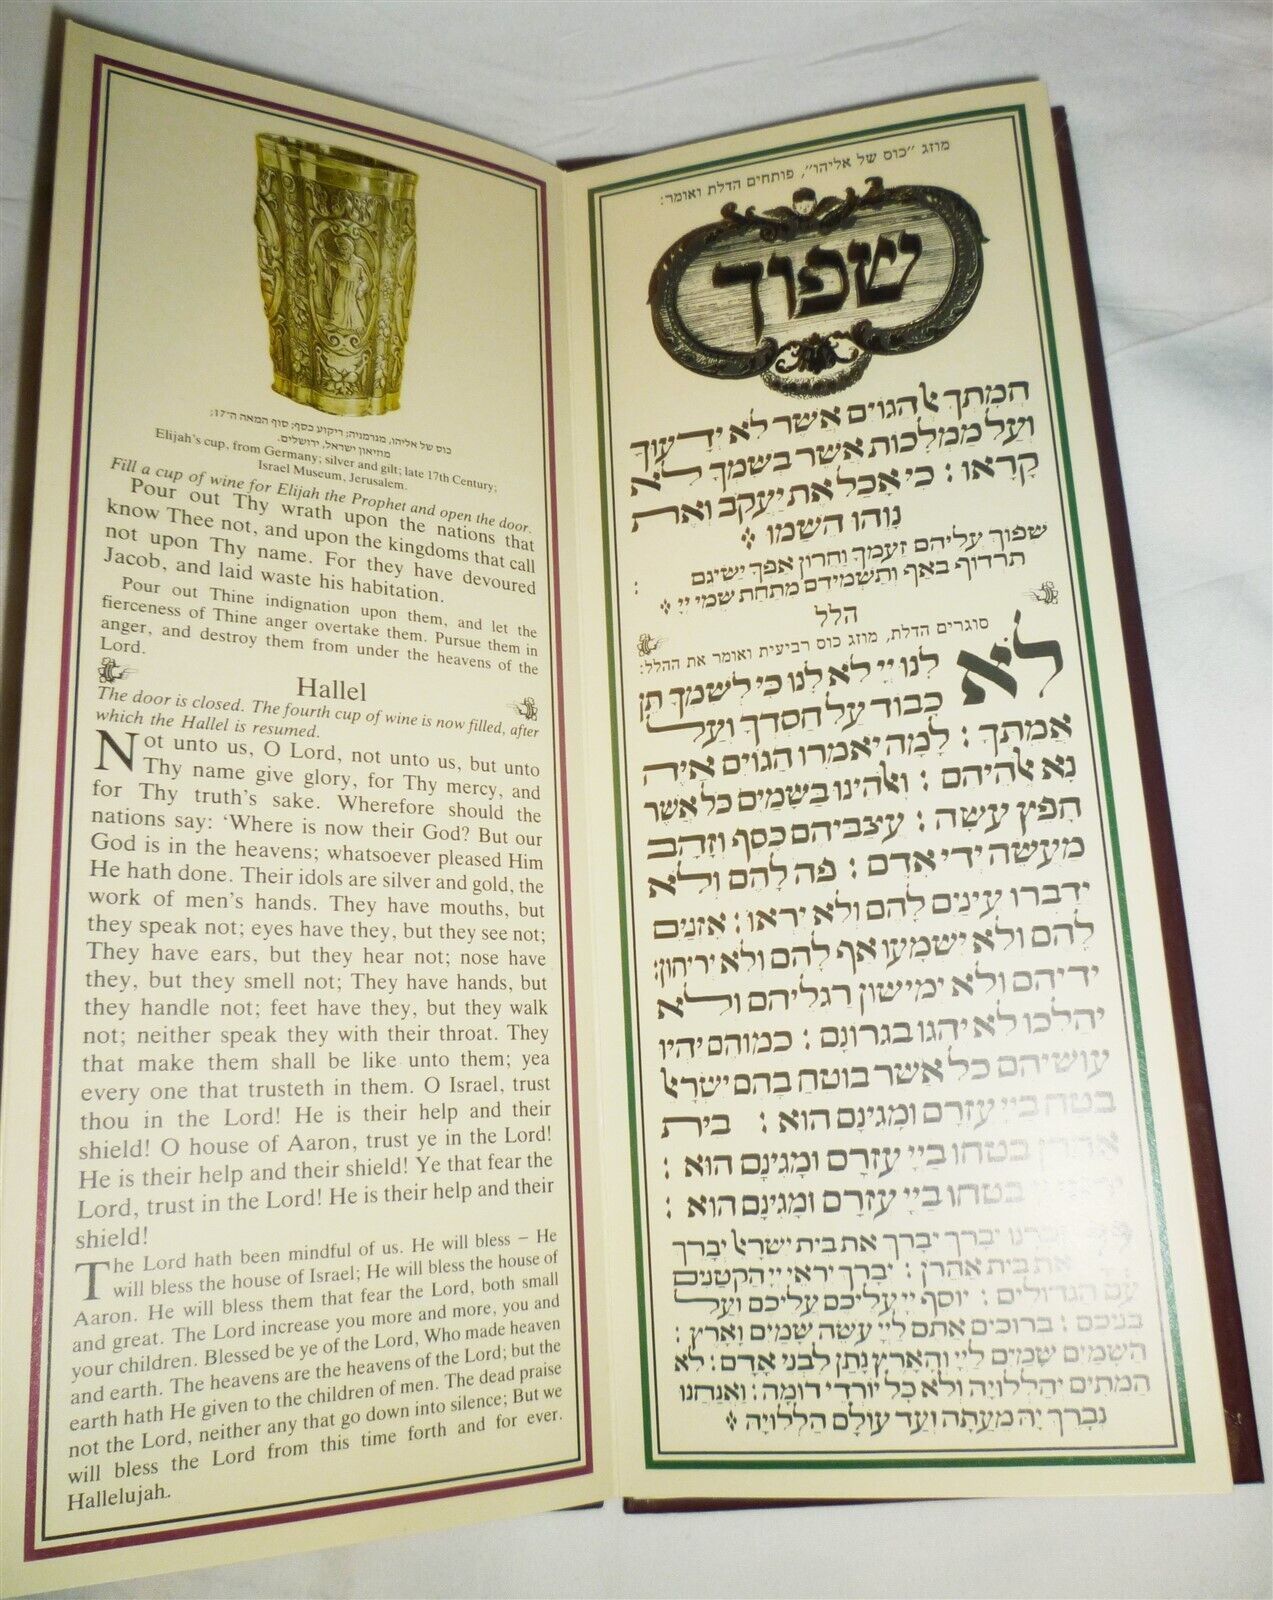 כוס של אליהו, מגרמניה; ריקוע כסף; סוף המאה ה־17;
מוזיאון ישראל, ירושלים.
Elijah's cup, from Germany; silver and gilt; late 17th Century;
Israel Museum, Jerusalem.
Fill a cup of wine for Elijah the Prophet and open the door.
Pour out Thy wrath upon the nations that
know Thee not, and upon the kingdoms that call
not upon Thy name. For they have devoured
Jacob, and laid waste his habitation.
Pour out Thine indignation upon them, and let the
fierceness of Thine anger overtake them. Pursue them in
anger, and destroy them from under the heavens of the
Lord.
Hallel
The door is closed. The fourth cup of wine is now filled, after
which the Hallel is resumed.
Not unto us, O Lord, not unto us, but unto
Thy name give glory, for Thy mercy, and
for Thy truth's sake. Wherefore should the
nations say: 'Where is now their God? But our
God is in the heavens; whatsoever pleased Him
He hath done. Their idols are silver and gold, the
work of men's hands. They have mouths, but
they speak not; eyes have they, but they see not;
They have ears, but they hear not; nose have
they, but they smell not; They have hands, but
they handle not; feet have they, but they walk
not; neither speak they with their throat. They
that make them shall be like unto them; yea
every one that trusteth in them. O Israel, trust
thou in the Lord! He is their help and their
shield! O house of Aaron, trust ye in the Lord!
He is their help and their shield! Ye that fear the
Lord, trust in the Lord! He is their help and their
shield!
The Lord hath been mindful of us. He will bless – He
will bless the house of Israel; He will bless the house of
Aaron. He will bless them that fear the Lord, both small
and great. The Lord increase you more and more, you and
your children. Blessed be ye of the Lord, Who made heaven
and earth. The heavens are the heavens of the Lord; but the
earth hath He given to the children of men. The dead praise
not the Lord, neither any that go down into silence; But we
will bless the Lord from this time forth and for ever.
Hallelujah.
מוזג "כוס של אליהו", פותחים הדלת ואומר:
שפוך
חמתך אל הגוים אשר לא ידעוך
ועל ממלכות אשר בשמך לא
קראו: כי אכל את יעקב ואת
נוהו השמו
שפוך עליהם זעמך וחרון אפך ישיגם:
תרדוף באף ותשמידם מתחת שמי יי
הלל
סוגרים הדלת, מוזג כוס רביעית ואומר את ההלל:
לא לנו יי לא לנו כי לשמך תן
כבוד על חסדך ועל
אמתך: למה יאמרו הגוים איה
נא אלהיהם: ואלהינו בשמים כל אשר
חפץ עשה: עצביהם כסף וזהב
מעשה ידי אדם: פה להם ולא
ידברו עינים להם ולא יראו: אזנים
להם ולא ישמעו אף להם ולא יריחון:
ידיהם ולא ימישון רגליהם ולא
יהלכו לא יהגו בגרונם: כמוהם יהיו
עושיהם כל אשר בוטח בהם ישראל
בטח ביי עזרם ומגינם הוא: בית
אהרן בטחו ביי עזרם ומגינם הוא:
בטחו ביי עזרם ומגינם הוא:
זכרנו יברך יברך את בית ישראל יברך
את בית אהרן: יברך יראי יי הקטנים
עם הגדולים: יוסף יי עליכם עליכם ועל
בניכם: ברוכים אתם ליי עשה שמים וארץ:
השמים שמים ליי והארץ נתן לבני אדם: לא
המתים יהללויה ולא כל יורדי דומה: ואנחנו
נברך יה מעתה ועד עולם הללויה